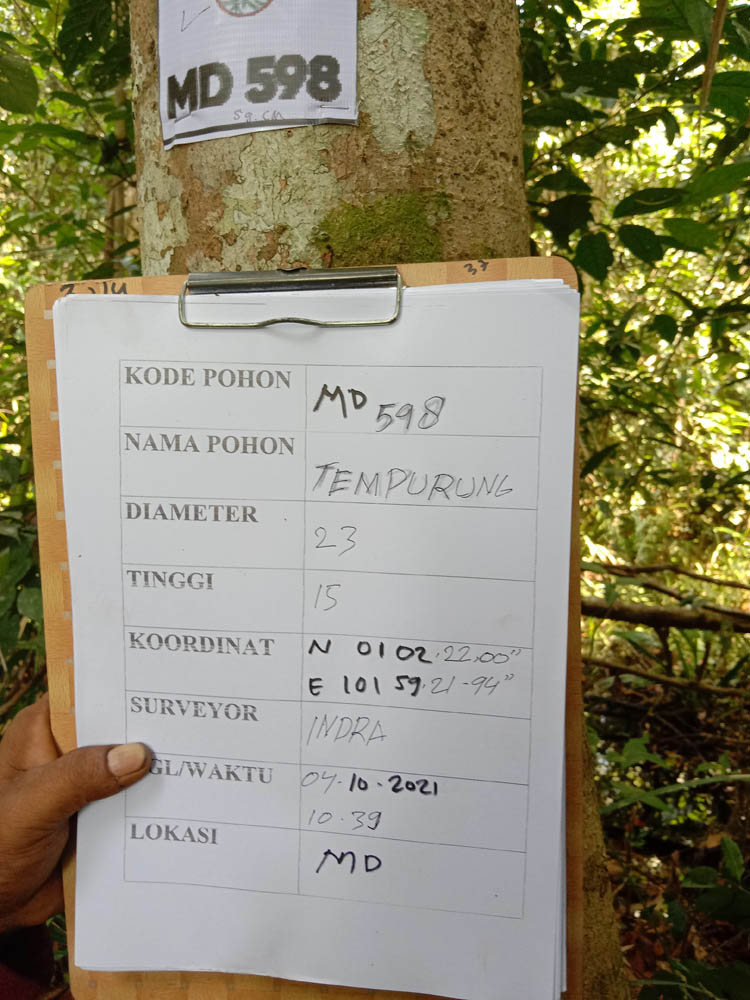 MD 598
59. CM
37
KODE POHON MD 598
NAMA POHON TEMPURUNG
DIAMETER 23
TINGGI 15
KOORDINAT N 01 02.22.00"
E 101 59.21-94"
SURVEYOR INDRA
GL/WAKTU 04-10-2021
10.39
LOKASI MD